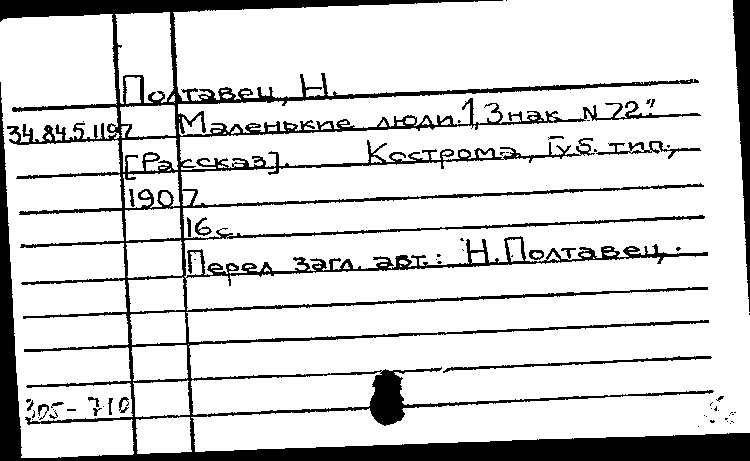 Полтавец, Н.
34.84.5.1197 Маленькие люди. 1, Знак N 72."
[Рассказ]. Кострома, Губ. тип.,
1907.
16 с.
Перед загл. авт.: Н. Полтавец.
305-710